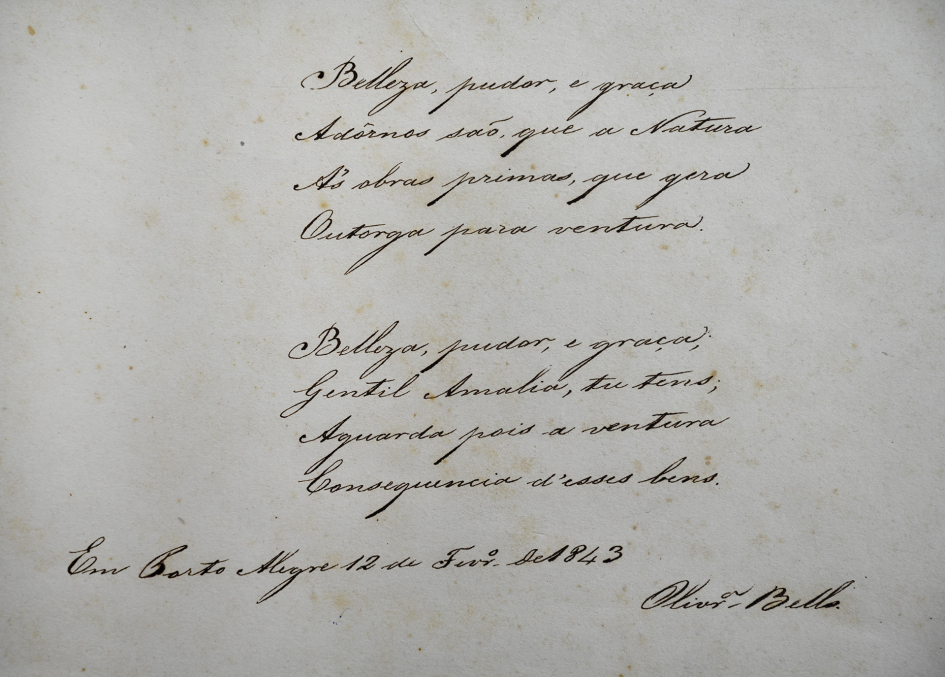 Belleza, pudor, e graça
Adôrnos saõ, que a Natura
A's obras primas, que gera
Outorga para ventura.
Belleza, pudor, e graça,
Gentil Amalia, tu tens;
Aguarda pois a ventura
Consequencia d'esses bens.
Em Porto Alegre 12 de Fevrº. de 1843
Olivrª. Bello.